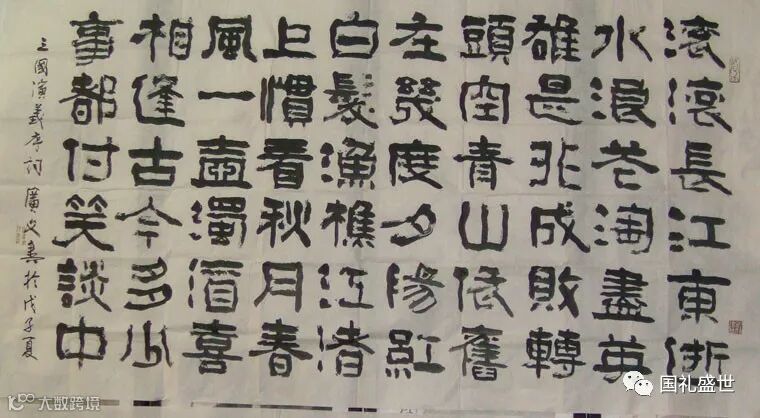 滚滚長江東逝
水浪花淘盡英
雄是非成敗轉
頭空青山依舊
在幾度夕陽紅
白髮漁樵江渚
上慣看秋月春
風一壺濁酒喜
相逢古今多少
事都付笑談中
三國演義序詞 廣文書於戊子夏
大数跨境
国礼盛世